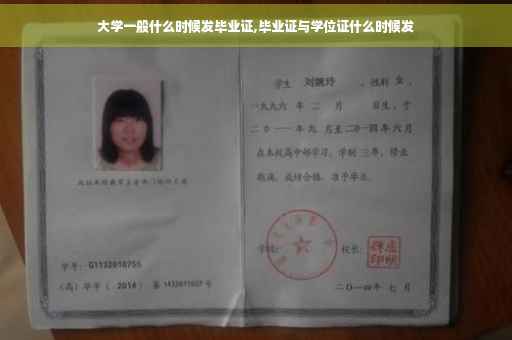 大学一般什么时候发毕业证,毕业证与学位证什么时候发
学生 刘婉玲 ，性别 女 ，
一九九六 年 二 月 日生，于
二〇一一年九 月至二〇一四年六月
在本校高中部学习，学制 三年，修业
期满，成绩合格，准予毕业。
学校： 校长：
学号： G1132010755
（高）毕字（ 2014 ）第 1432011027 号
二〇一四年 七 月